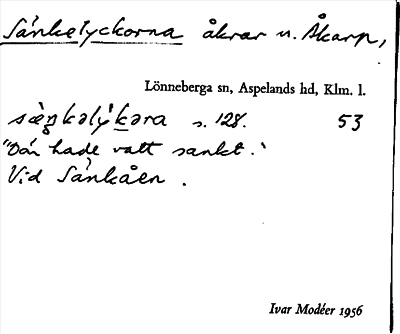 Sänkelyckorna åkrar u. Åkarp,
Lönneberga sn, Aspelands hd, Klm. l.
sæ̀ŋkəlýkəra s. 128. 53
"Där hade vatt sankt."
Vid Sänkåen.
Ivar Modéer 1956